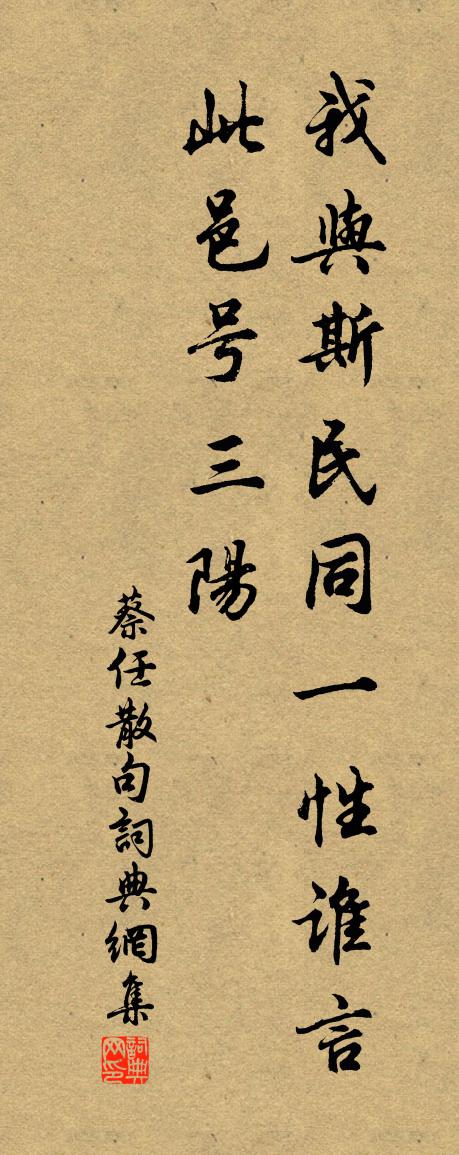 我與斯民同一性誰言
此邑号三陽
蔡任散句詞典網集
詞典
网印